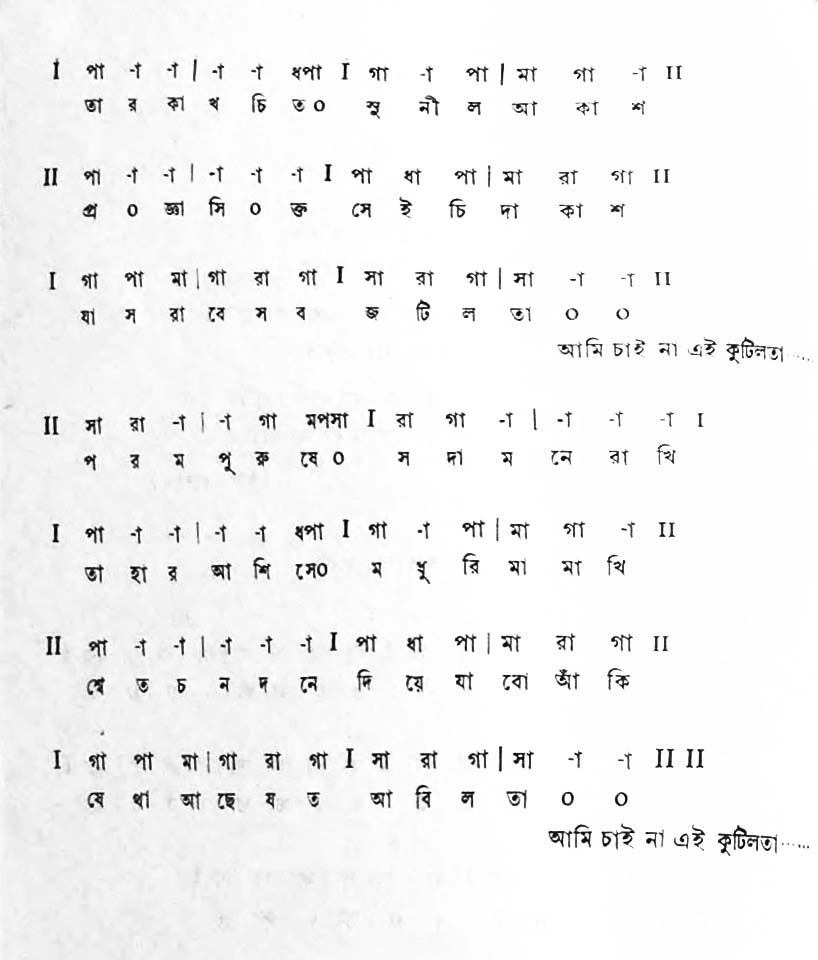 I পা -া -া | -া -া ধপা I গা -া পা | মা গা -া II
তা র কা খ চি ত০ সু নী ল আ কা শ
II পা -া -া | -া -া -া I পা ধা পা | মা রা গা II
প্র ০ জ্ঞা সি ০ ক্ত সে ই চি দা কা শ
I গা পা মা | গা রা গা I সা রা গা | সা -া -া II
যা স রা বে স ব জ টি ল তা ০ ০
আমি চাই না এই কুটিলতা.....
II সা রা -া | -া গা মপসা I রা গা -া | -া -া -া I
প র ম পু রু ষে০ স দা ম নে রা খি
I পা -া -া | -া -া ধপা I গা -া পা | মা গা -া II
তা হা র আ শি সে০ ম ধু রি মা মা খি
II পা -া -া | -া -া -া I পা ধা পা | মা রা গা II
শ্বে ত চ ন দ নে দি য়ে যা বো আঁ কি
I গা পা মা | গা রা গা I সা রা গা | সা -া -া II II
যে থা আ ছে য ত আ বি ল তা ০ ০
আমি চাই না এই কুটিলতা......